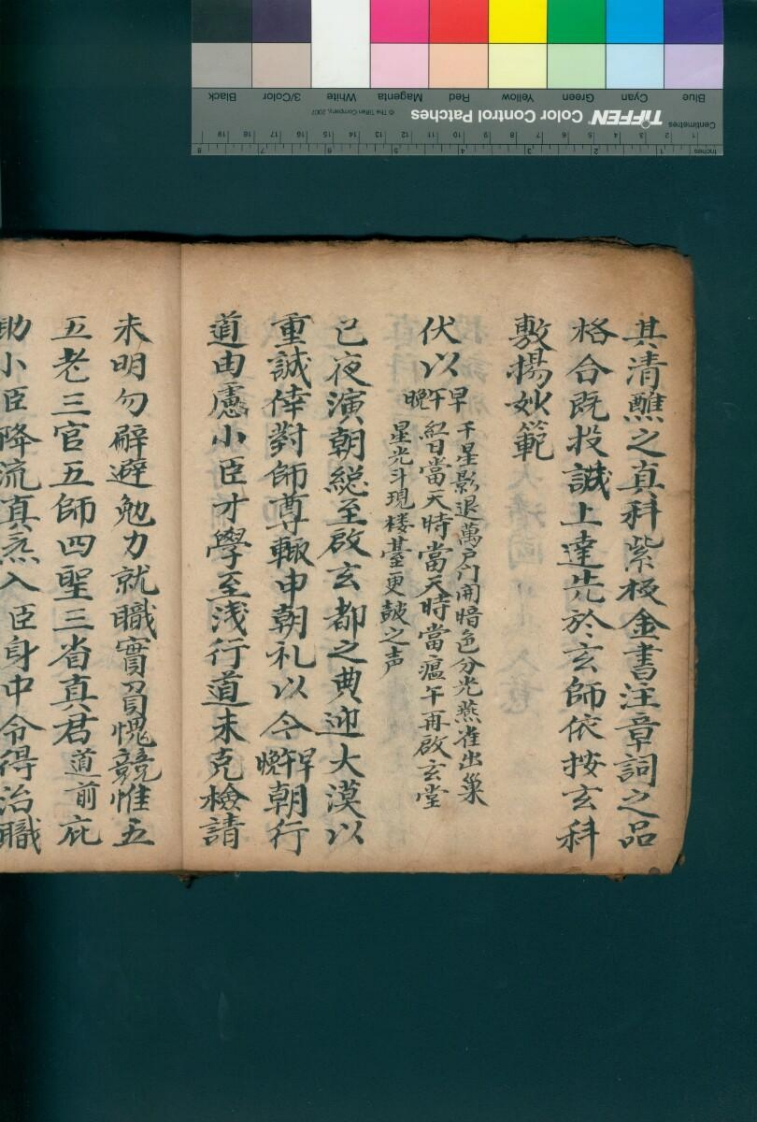 其清醮之真科紫极金書注章詞之品
格合既投誠上達先於玄師依按玄科
敷揚妙範
伏以
早 千星影退萬户门開暗色分光燕雀出巢
午 紅日當天時當天時當瘟午再啟玄堂
晚 星光斗現楼䑓更皷之声
已夜演朝総至啟玄都之典迎大漠以
重誠倖對師尊輙申朝礼以今早午晚朝行
道由慮小臣才學至浅行道未克檢請
未明勿辟避勉力就職實習愧競惟五
五老三官五師四聖三省真君道前庇
助小臣降流真炁入臣身中令得治職
Blue Cyan Green Yellow Red Magenta White 3/Color Black
TIFFEN Color Control Patches
© The Tiffen Company, 2007
Centimetres
Inches